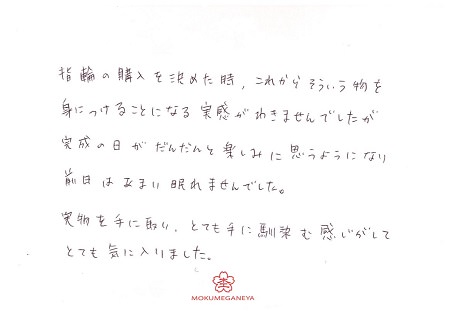 指輪の購入を決めた時、これからそういう物を
身につけることになる実感がわきませんでしたが
完成の日がだんだんと楽しみに思うようになり
前日はあまり眠れませんでした。
実物を手に取り、とても手に馴染む感じがして
とても気に入りました。
MOKUMEGANEYA